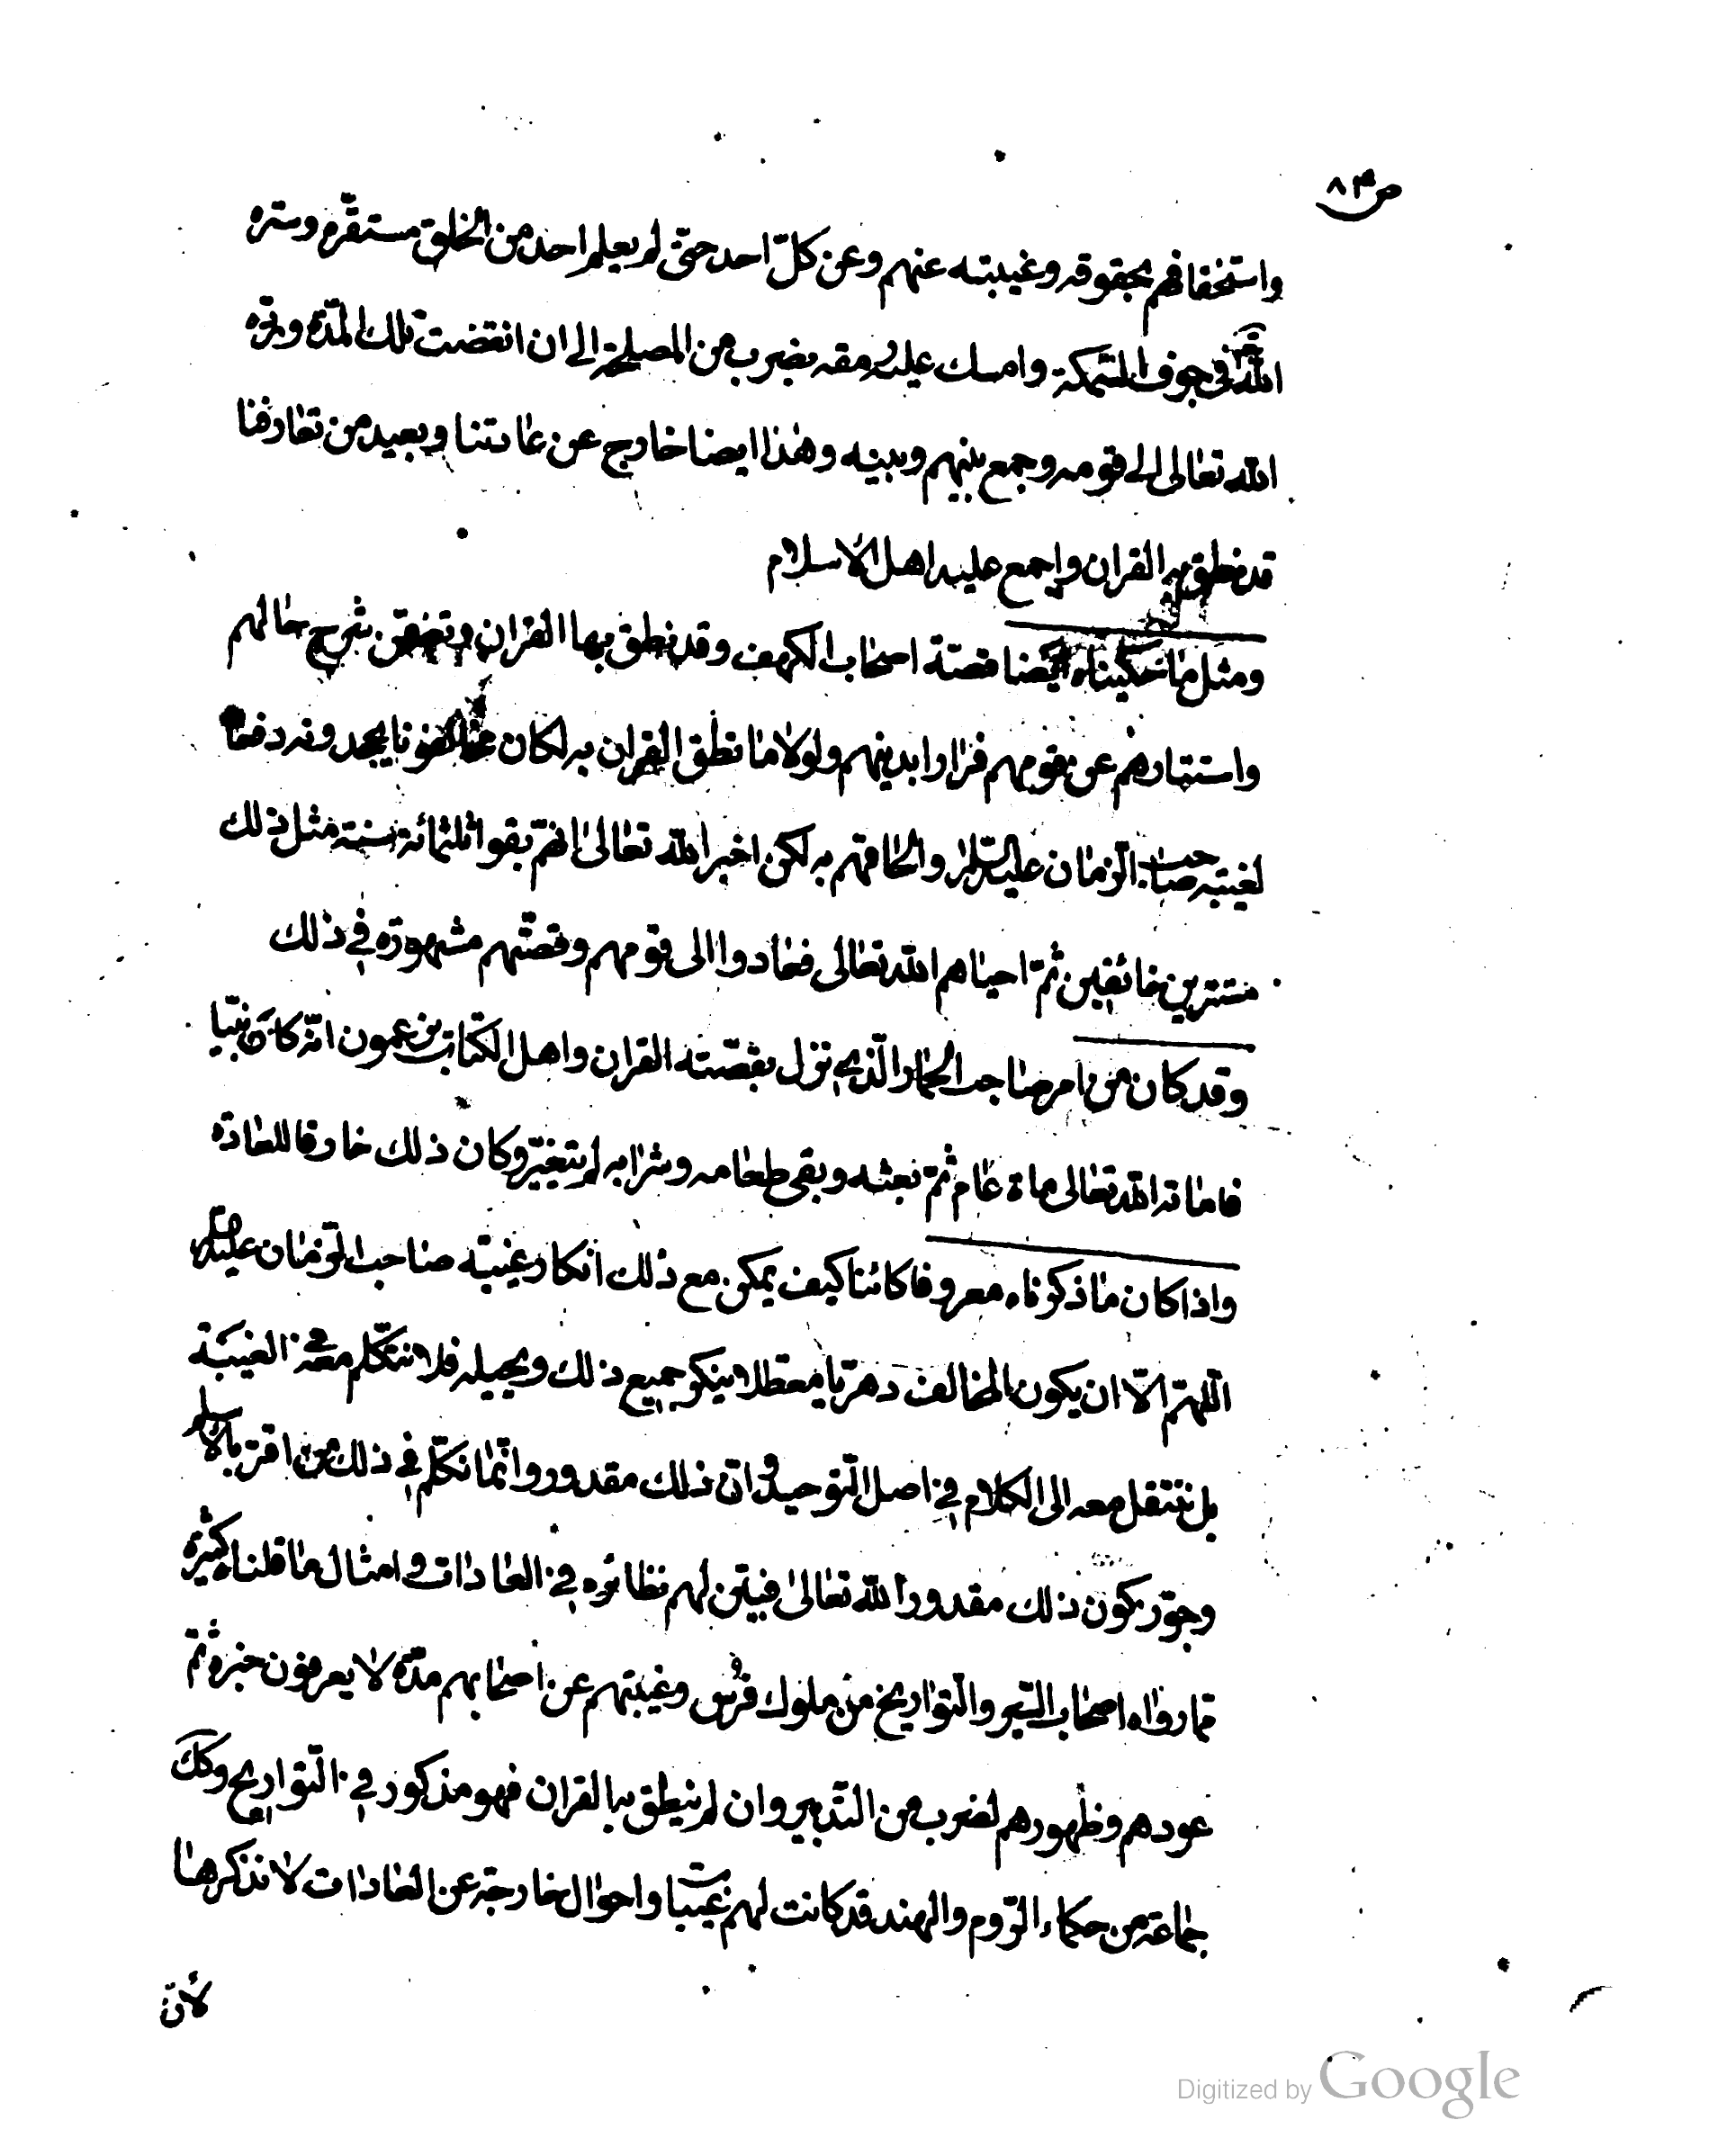 ص ٨٣
واستخفافهم بحقوقه وغيبته عنهم وعن كلّ احد حتّى لم يعلم احد من الخلق مستقرّه وستره
الله في جوف السّمكة وامسك عليه رمقه بضرب من المصلحة الى ان انقضت تلك المدّة وردّه
الله تعالى الى قومه وجمع بينهم وبينه وهذا ايضا خارج عن عادتنا وبعيد من تعارفنا
قد نطق به القران واجمع عليه اهل الاسلام
ومثل ما حكيناه ايضا قصّة اصحاب الكهف وقد نطق بها القران وتضمّن شرح حالهم
واستتارهم عن قومهم فرارا بدينهم ولولا ما نطق القران به لكان مخالفونا يجحدونه دفعا
لغيبة صاحب الزمان عليه السّلم والحاقهم به لكن اخبر الله تعالى انّهم بقوا ثلثمائة سنة مثل ذلك
مستترين خائفين ثمّ احياهم الله تعالى فعادوا الى قومهم وقصّتهم مشهورة في ذلك
وقد كان من امر صاحب الحمار الّذي نزل بقصّته القران واهل الكتاب يزعمون انّه كان نبيّا
فاماته الله تعالى مأة عام ثمّ بعثه وبقى طعامه وشرابه لم يتغيّر وكان ذلك خارقا للعادة
واذا كان ما ذكرناه معروفا كائنا كيف يمكن مع ذلك انكار غيبة صاحب الزمان عليه السلم
اللّهمّ الّا ان يكون المخالف دهريّا معطّلا ينكر جميع ذلك ويحيله فلا نتكلّم معه في الغيبة
بل ننتقل معه الى الكلام في اصل التّوحيد وانّ ذلك مقدور وانّما نكلّم في ذلك من اقرّ بالاسلم
وجوّز كون ذلك مقدورا لله تعالى فنبيّن لهم نظائره في العادات وامثال ما قلناه كثيرة
ممّا رواه اصحاب السّير والتّواريخ من ملوك فرس وغيبتهم عن اصحابهم مدّة لا يعرفون خبره ثمّ
عودهم وظهورهم لضرب من التّدبير وان لم ينطق به القران فهو مذكور في التّواريخ وكك
جماعة من حكماء الرّوم والهند قد كانت لهم غيبات واحوال خارجة عن العادات لا نذكرها
لانّ
Digitized by Google